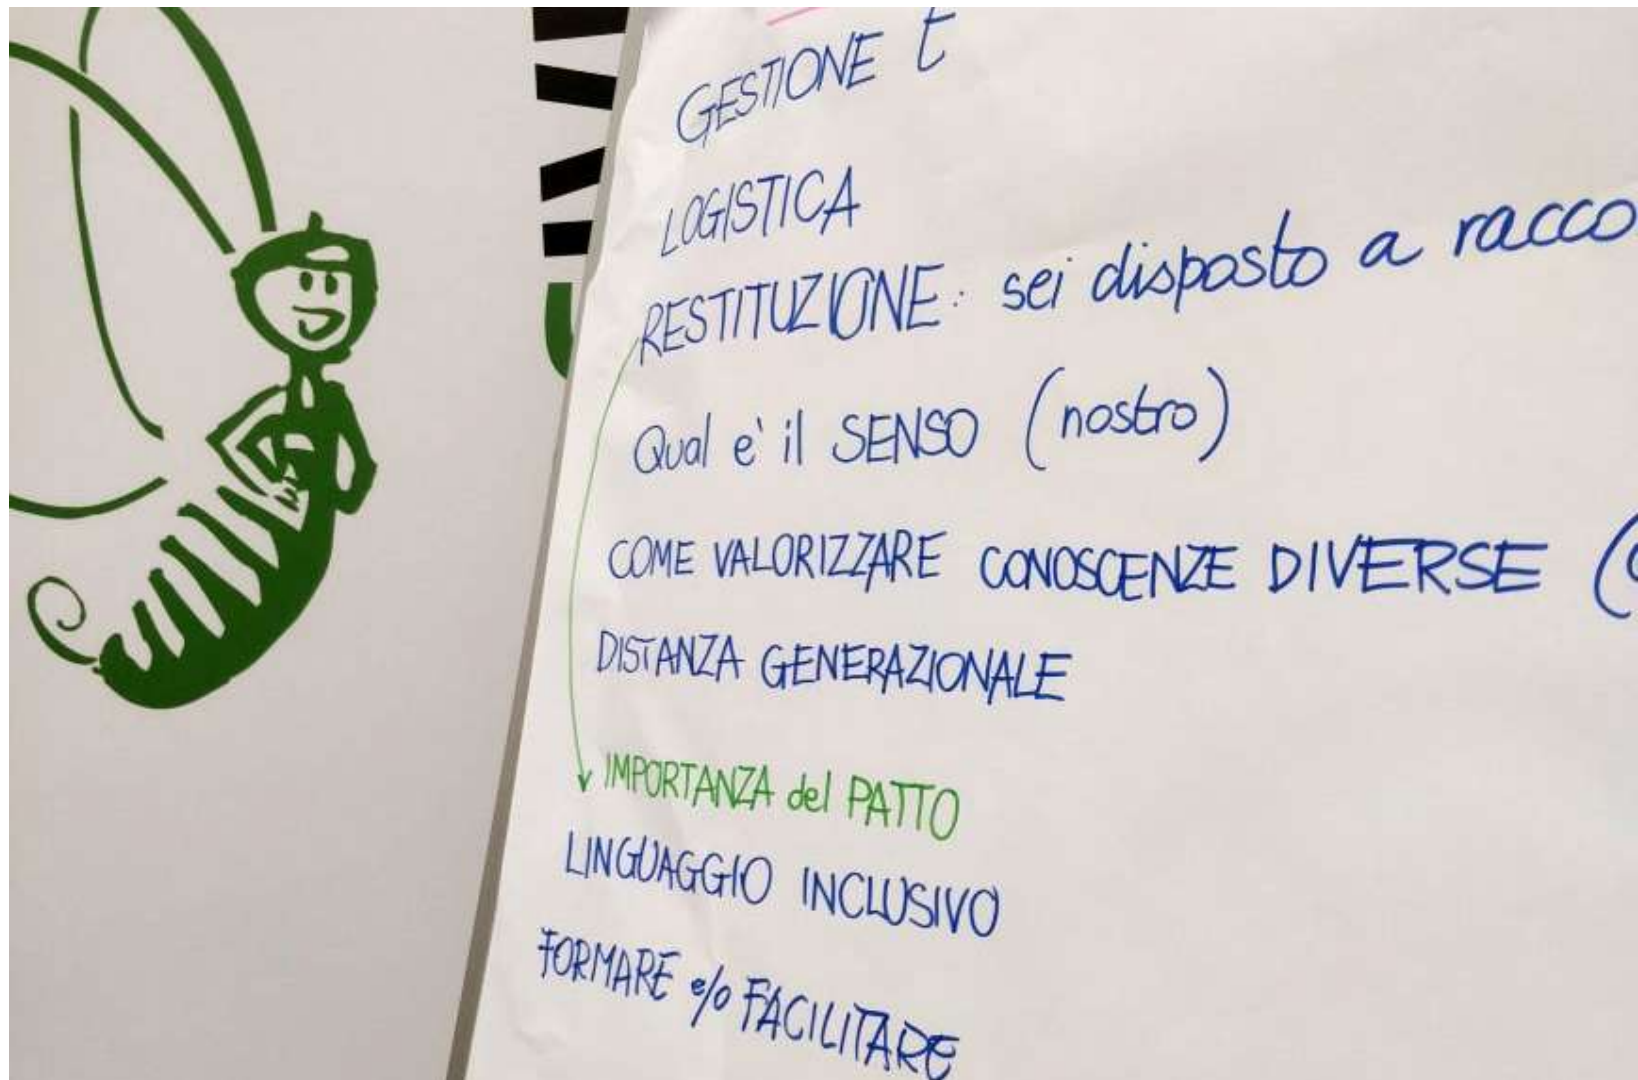 GESTIONE t
LOGISTICA
RESTITUZIONE: sei disposto a racco
Qual e' il SENSO (nostro)
COME VALORIZZARE CONOSCENZE DIVERSE (
DISTANZA GENERAZIONALE
IMPORTANZA del PATTO
LINGUAGGIO INCLUSIVO
FORMARE e/o FACILITARE